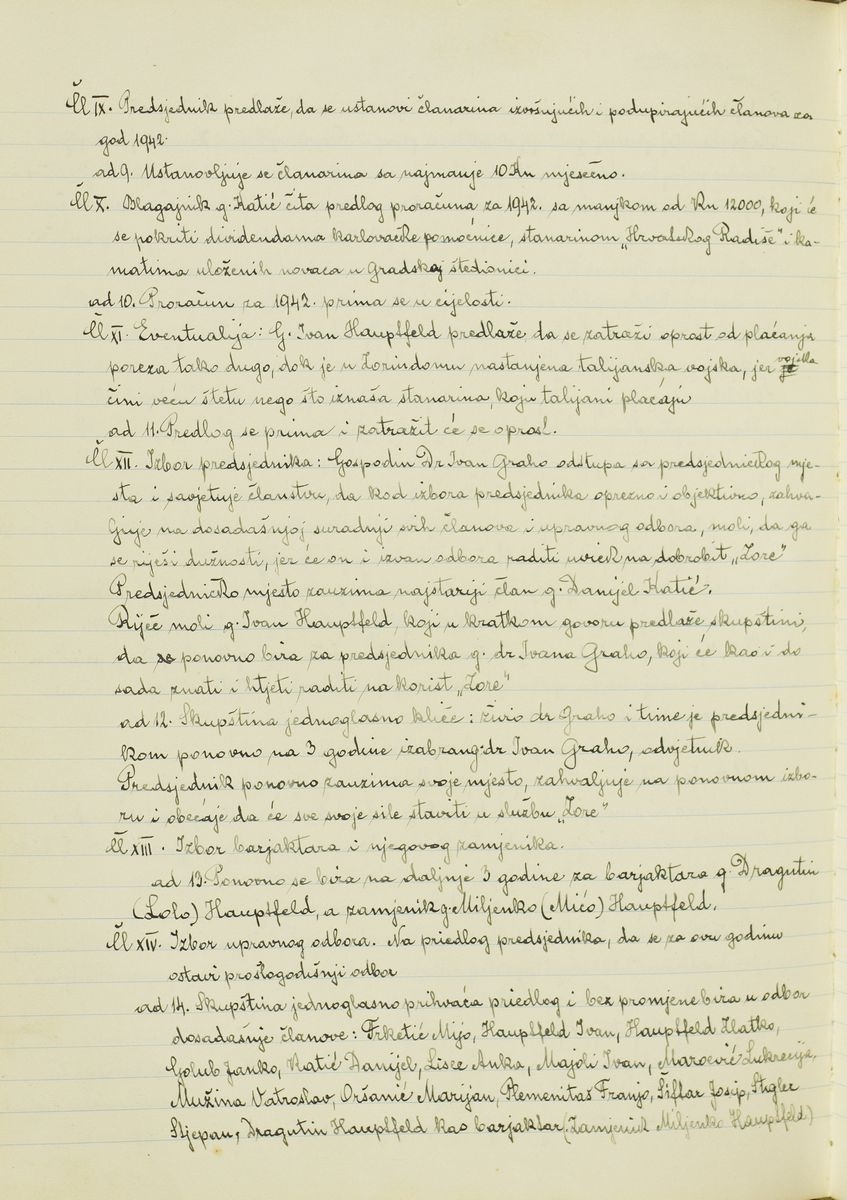 Čl IX. Predsjednik predlaže, da se ustanovi članarina izvršujućih i podupirajućih članova za
god 1942.
ad 9. Ustanovljuje se članarina sa najmanje 10 Kn mjesečno.
Čl X. Blagajnik g. Katić čita predlog proračuna za 1942. sa manjkom od Kn 12000, koji će
se pokriti dividendama karlovačke pomoćnice, stanarinom „Hrvatskog Radiše" i ka-
matima uloženih novaca u Gradskoj štedionici.
ad 10. Proračun za 1942. prima se u cijelosti.
Čl XI. Eventualija: G. Ivan Hauptfeld predlaže da se zatraži oprost od plaćanja
poreza tako dugo, dok je u Zorindomu nastanjena talijanska vojska, jer vojska
čini veću štetu nego što iznaša stanarina, koju talijani plaćaju
ad 11. Predlog se prima i zatražit će se oprost.
Čl XII. Izbor predsjednika: Gospodin Dr Ivan Graho odstupa sa predsjedničkog mje-
sta i savjetuje članstvu, da kod izbora predsjednika oprezno i objektivno, zahva-
ljuje na dosadašnjoj suradnji svih članova i upravnog odbora, moli, da ga
se riješi dužnosti, jer će on i izvan odbora raditi uviek na dobrobit „Zore"
Predsjedničko mjesto zauzima najstariji član g. Danijel Katić.
Riječ moli g. Ivan Hauptfeld, koji u kratkom govoru predlaže skupštini,
da se ponovno bira za predsjednika g. dr Ivana Graho, koji će kao i do
sada znati i htjeti raditi na korist „Zore"
ad 12. Skupština jednoglasno kliče: živio dr Graho i time je predsjedni-
kom ponovno na 3 godine izabran g. dr Ivan Graho, odvjetnik.
Predsjednik ponovno zauzima svoje mjesto, zahvaljuje na ponovnom izbo-
ru i obećaje da će sve svoje sile staviti u službu „Zore"
Čl XIII. Izbor barjaktara i njegovog zamjenika.
ad 13. Ponovno se bira na daljnje 3 godine za barjaktara g. Dragutin
(Lolo) Hauptfeld, a zamjenik g. Miljenko (Mićo) Hauptfeld.
Čl XIV. Izbor upravnog odbora. Na priedlog predsjednika, da se za ovu godinu
ostavi prošlogodišnji odbor
ad 14. Skupština jednoglasno prihvaća priedlog i bez promjene bira u odbor
dosadašnje članove: Frketić Mijo, Hauptfeld Ivan, Hauptfeld Zlatko,
Golub Janko, Katić Danijel, Lisac Anka, Majoli Ivan, Marčević Lukrecija,
Mužina Vatroslav, Oršanić Marijan, Plemenitaš Franjo, Šiftar Josip, Stigler
Stjepan, Dragutin Hauptfeld kao barjaktar (Zamjenik Miljenko Hauptfeld)